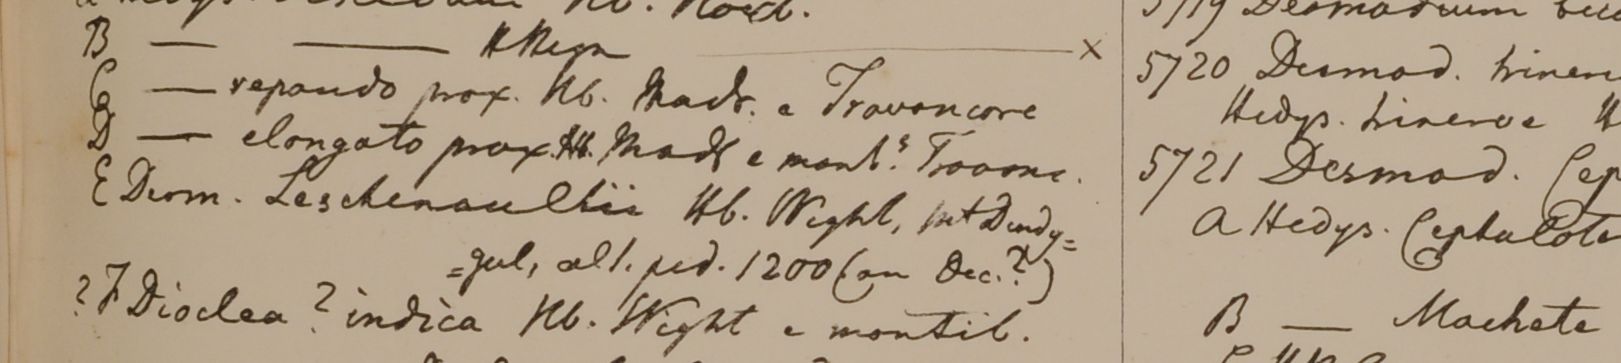 B — — H Heyn — x
C — repando prox. Hb. Madr. e Travancore
D — elongato prox. Hb. Madr e mont.s Travanc.
E Desm. Leschenaultii Hb. Wight, mt Dindy=
=gul, alt. ped. 1200 (an Dec.?)
? F Dioclea ? indica Hb. Wight e montib.
5719 Desmodium
5720 Desmod. trinerv
Hedys. trinerve H
5721 Desmod. Cep
A Hedys. Cephalote
B — Machete